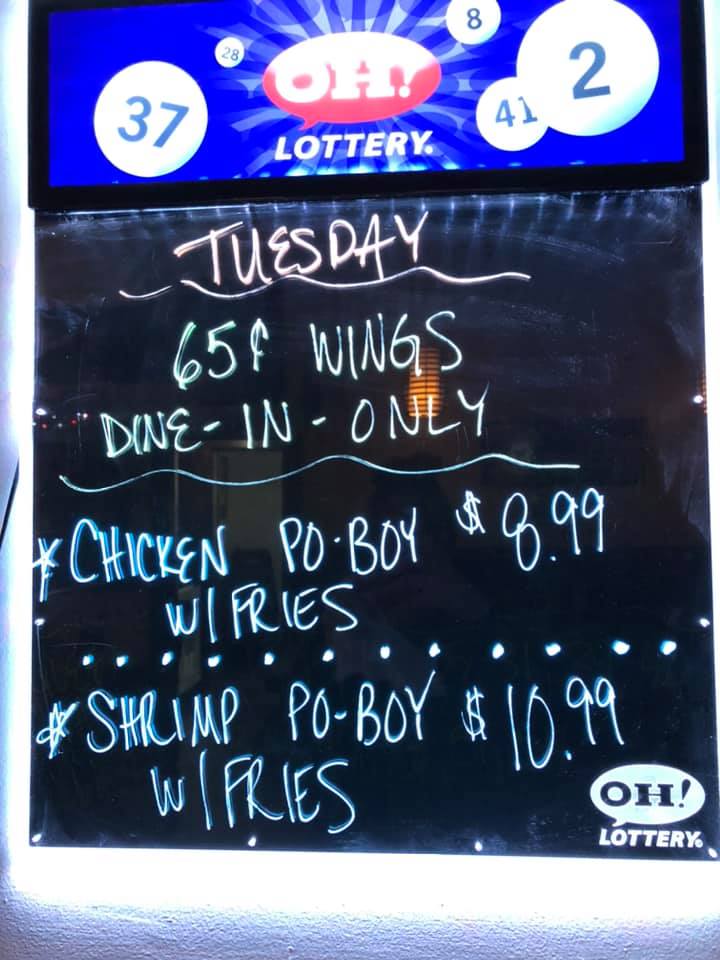 37
28
OH!
LOTTERY.
8
41
2
TUESDAY
65¢ WINGS
DINE-IN-ONLY
*CHICKEN PO-BOY $8.99
W/FRIES
*SHRIMP PO-BOY $10.99
W/FRIES
OH!
LOTTERY.